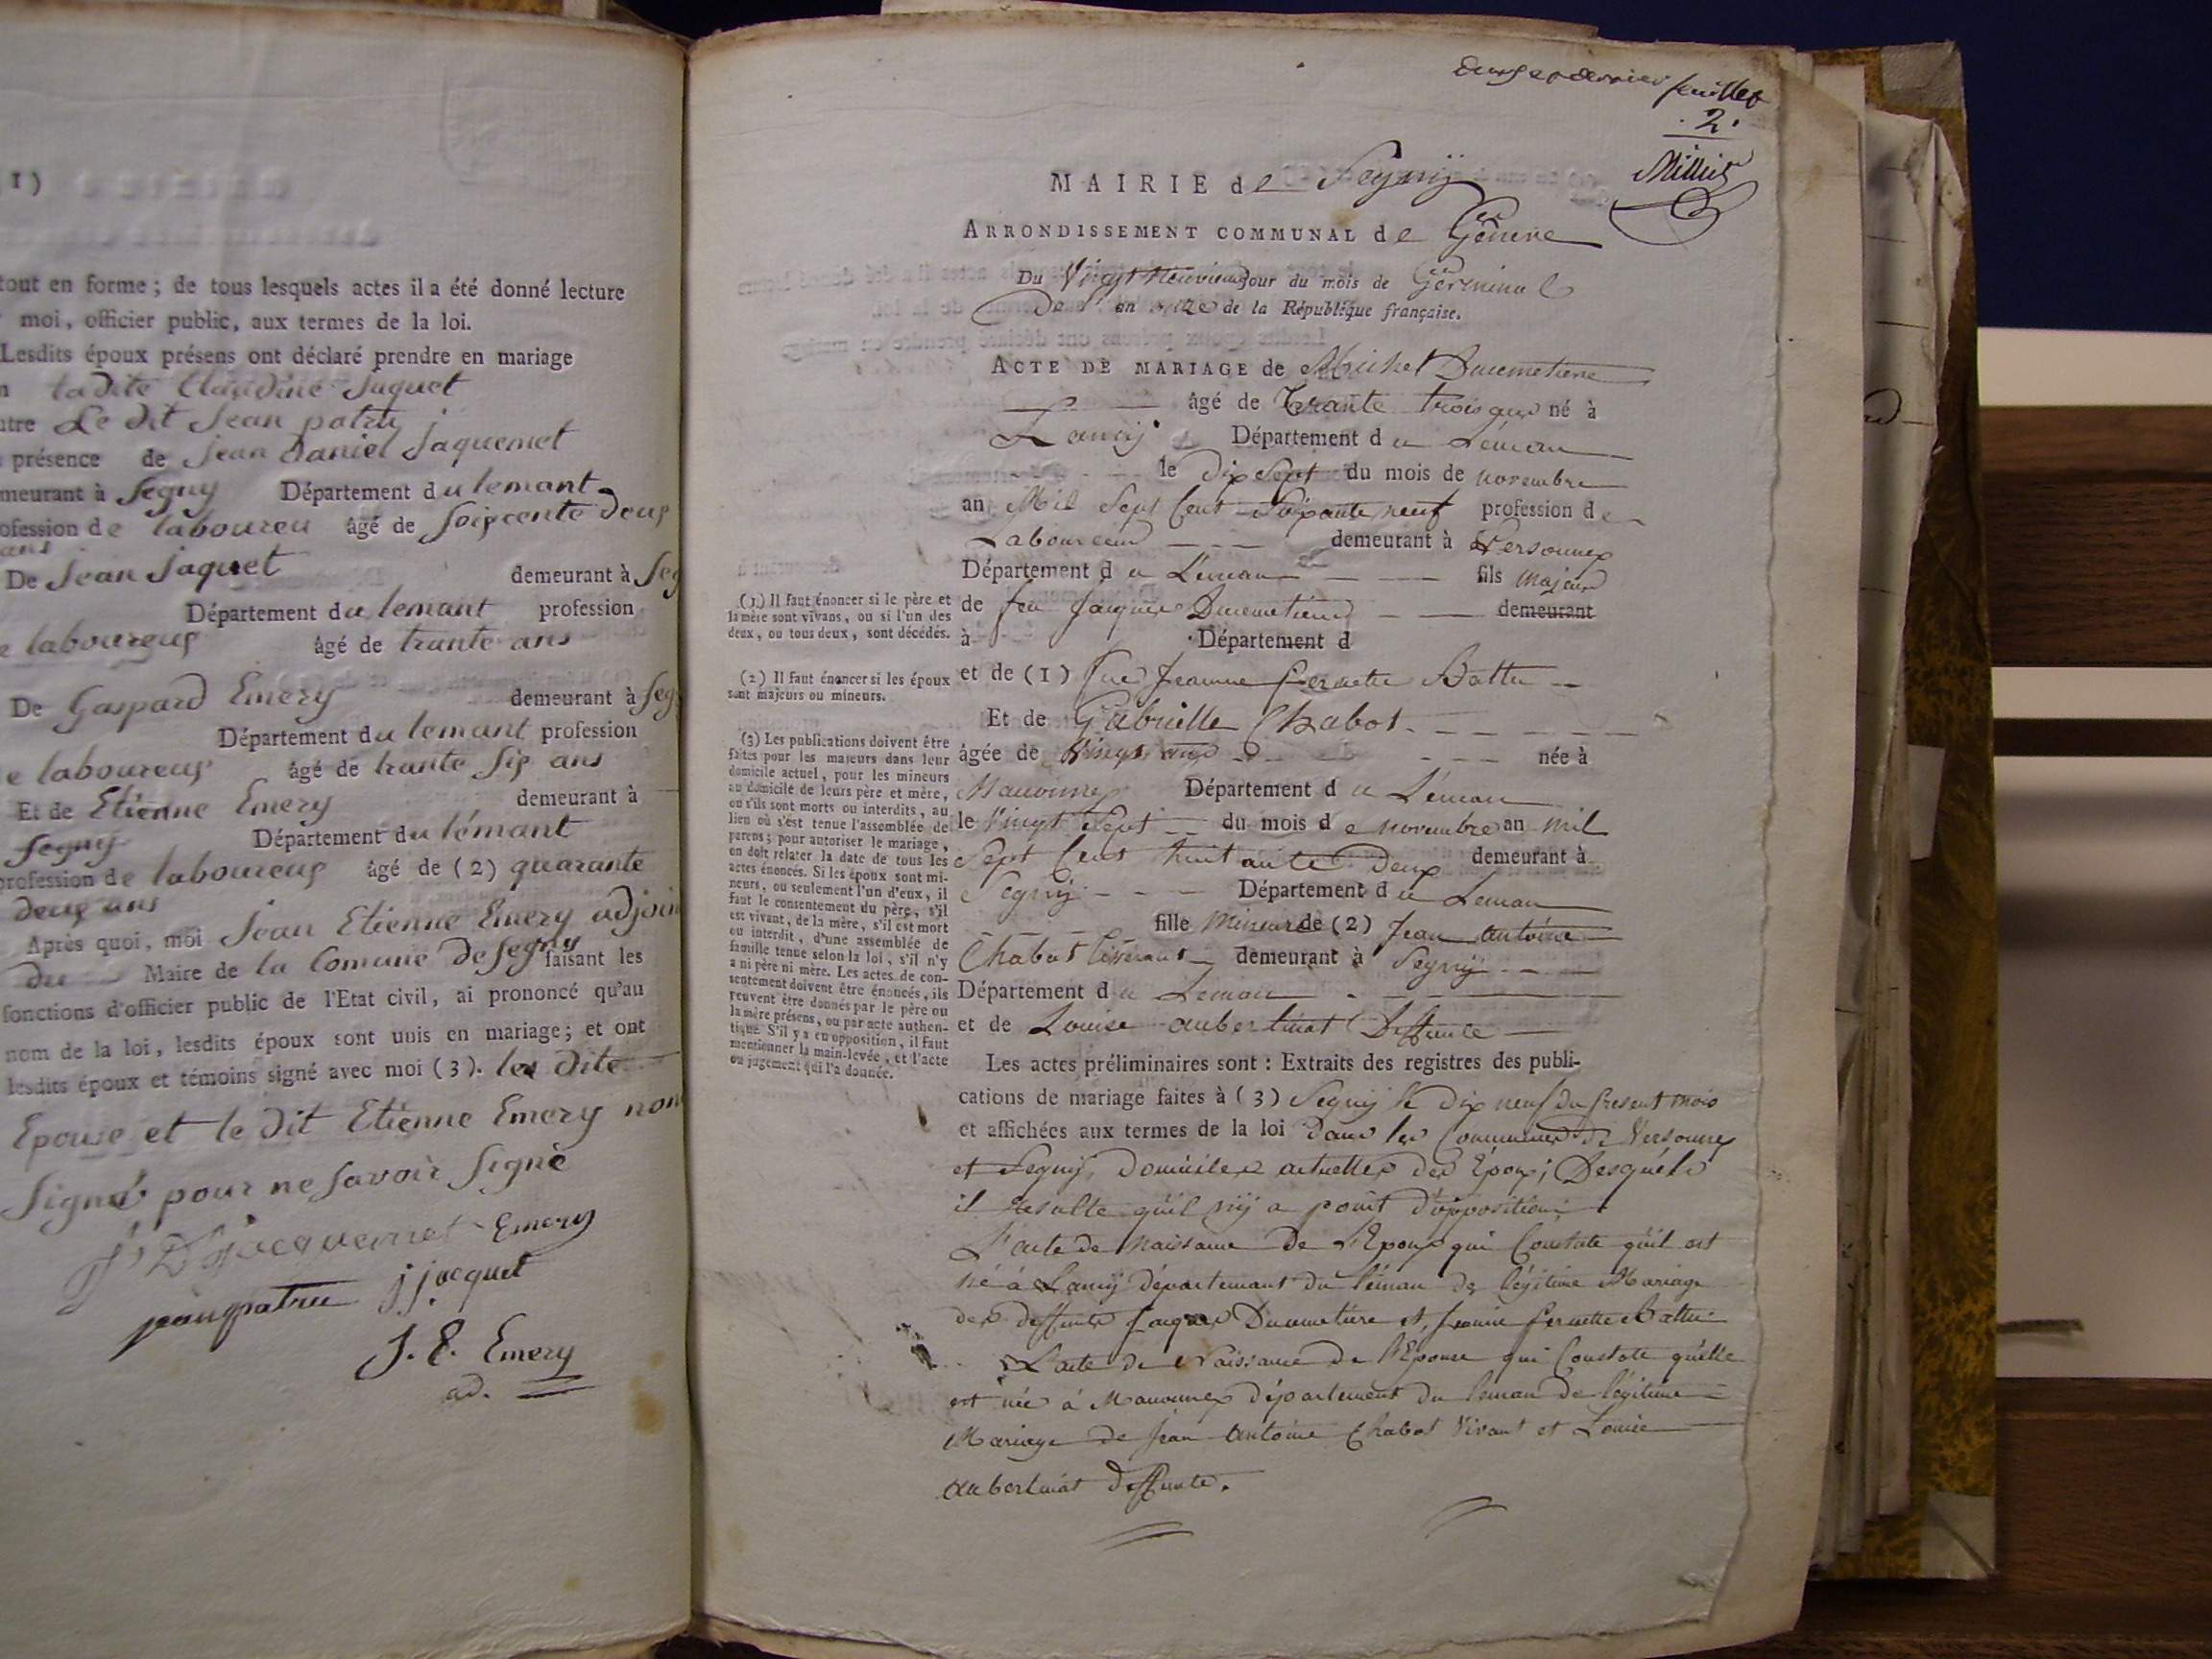 1)
tout en forme ; de tous lesquels actes il a été donné lecture
moi, officier public, aux termes de la loi.
Lesdits époux présens ont déclaré prendre en mariage
ladite Claudine Jaquet
Le dit Jean patru
présence de Jean Daniel Jaquemet
meurant à Segny Département du lemant
ofession de laboureu âgé de soiscente deus
ans
De Jean Jaquet demeurant à Seg
Département du lemant profession
e laboureus âgé de trante ans
De Gaspard Emery demeurant à Seg
Département du lemant profession
e laboureus âgé de trante sis ans
Et de Etienne Emery demeurant à
Segny Département du lémant
profession de laboureus âgé de (2) quarante
deus ans
Après quoi, moi Jean Etienne Emery adjoin
du Maire de la Comune De Segny faisant les
fonctions d'officier public de l'Etat civil, ai prononcé qu'au
nom de la loi, lesdits époux sont unis en mariage; et ont
lesdits époux et témoins signé avec moi (3). les dite
Epouse et le dit Etienne Emery non
Signé pour ne savoir signé
J D Jacquemet Emery
jean patru j jacquet
J. E. Emery
ad.
feuillet
2.
MAIRIE de Segnÿ
ARRONDISSEMENT COMMUNAL de Genève
Du Vingt Neuvieme jour du mois de Germinal
de l'an de la République française.
ACTE DE MARIAGE de Michel Ducmetiere
âgé de Trante trois ans né à
Lancÿ Département du Léman
le dix Sept du mois de novembre
an Mil Sept Cent Soixante neuf profession de
Laboureur demeurant à Versonnex
Département du Léman fils Majeur
de feu Jaques Ducmetiere demeurant
à Département d
et de (1) feue Jeanne Pernette Battu
Et de Gabrielle Chabot
âgée de Vingt née à
Département du Léman
le Vingt Sept du mois de novembre an mil
Sept Cent huitante Deux demeurant à
Segnÿ Département du Leman
fille Mineure de (2) Jean Antoine
Chabot tisserant demeurant à Segnÿ
Département du Leman
et de Louise Deffunte
Les actes préliminaires sont : Extraits des registres des publi-
cations de mariage faites à (3) Segnÿ le dix neuf du present mois
et affichées aux termes de la loi dans les Communes de Versonnex
et Segnÿ, domiciles actuelles des Époux; Desquels
il résulte qu'il n'ÿ a point d'opposition
L'acte de Naissance de l'Epoux qui Constate qu'il est
né à Lancÿ département du léman de légitime Mariage
des deffunts Jaques Ducmetiere et Jeanne Pernette Battu
L'acte de Naissance de l'Epouse qui Constate qu'elle
est née à département du leman de légitime
Mariage de Jean Antoine Chabot Vivant et Louise
deffunte.
(1) Il faut énoncer si le père et
la mère sont vivans, ou si l'un des
deux, ou tous deux, sont décédés.
(2) Il faut énoncer si les époux
sont majeurs ou mineurs.
(3) Les publications doivent être
faites pour les majeurs dans leur
domicile actuel, pour les mineurs
au domicile de leurs père et mère,
ou s'ils sont morts ou interdits, au
lieu où s'est tenue l'assemblée de
parens; pour autoriser le mariage,
on doit relater la date de tous les
actes énoncés. Si les époux sont mi-
neurs, ou seulement l'un d'eux, il
faut le consentement du père, s'il
est vivant, de la mère, s'il est mort
ou interdit, d'une assemblée de
famille tenue selon la loi, s'il n'y
a ni père ni mère. Les actes de con-
sentement doivent être énoncés, ils
peuvent être donnés par le père ou
la mère présens, ou par acte authen-
tique. S'il y a eu opposition, il faut
mentionner la main-levée, et l'acte
ou jugement qui l'a donnée.